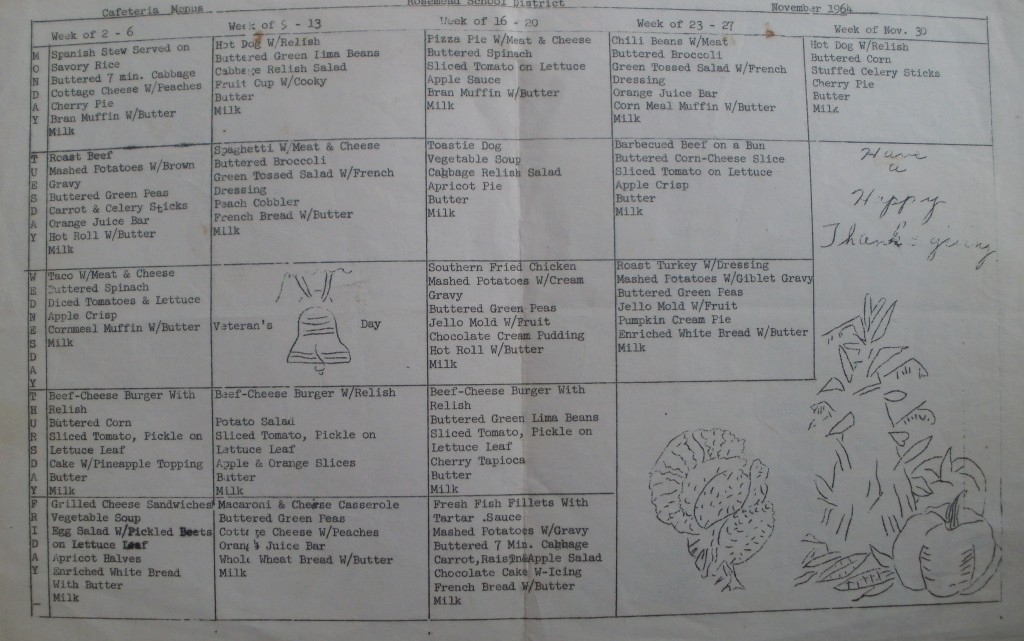 Cafeteria Menus Rosemead School District November 1964
Week of 2 - 6
Week of 9 - 13
Week of 16 - 20
Week of 23 - 27
Week of Nov. 30
MONDAY
Spanish Stew Served on
Savory Rice
Buttered 7 min. Cabbage
Cottage Cheese W/Peaches
Cherry Pie
Bran Muffin W/Butter
Milk
Hot Dog W/Relish
Buttered Green Lima Beans
Cabbage Relish Salad
Fruit Cup W/Cooky
Butter
Milk
Pizza Pie W/Meat & Cheese
Buttered Spinach
Sliced Tomato on Lettuce
Apple Sauce
Bran Muffin W/Butter
Milk
Chili Beans W/Meat
Buttered Broccoli
Green Tossed Salad W/French
Dressing
Orange Juice Bar
Corn Meal Muffin W/Butter
Milk
Hot Dog W/Relish
Buttered Corn
Stuffed Celery Sticks
Cherry Pie
Butter
Milk
TUESDAY
Roast Beef
Mashed Potatoes W/Brown
Gravy
Buttered Green Peas
Carrot & Celery Sticks
Orange Juice Bar
Hot Roll W/Butter
Milk
Spaghetti W/Meat & Cheese
Buttered Broccoli
Green Tossed Salad W/French
Dressing
Peach Cobbler
French Bread W/Butter
Milk
Toastie Dog
Vegetable Soup
Cabbage Relish Salad
Apricot Pie
Butter
Milk
Barbecued Beef on a Bun
Buttered Corn-Cheese Slice
Sliced Tomato on Lettuce
Apple Crisp
Butter
Milk
Have
a
Happy
Thanks = giving
WEDNESDAY
Taco W/Meat & Cheese
Buttered Spinach
Diced Tomatoes & Lettuce
Apple Crisp
Cornmeal Muffin W/Butter
Milk
Veteran's Day
Southern Fried Chicken
Mashed Potatoes W/Cream
Gravy
Buttered Green Peas
Jello Mold W/Fruit
Chocolate Cream Pudding
Hot Roll W/Butter
Milk
Roast Turkey W/Dressing
Mashed Potatoes W/Giblet Gravy
Buttered Green Peas
Jello Mold W/Fruit
Pumpkin Cream Pie
Enriched White Bread W/Butter
Milk
THURSDAY
Beef-Cheese Burger With
Relish
Buttered Corn
Sliced Tomato, Pickle on
Lettuce Leaf
Cake W/Pineapple Topping
Butter
Milk
Beef-Cheese Burger W/Relish
Potato Salad
Sliced Tomato, Pickle on
Lettuce Leaf
Apple & Orange Slices
Butter
Milk
Beef-Cheese Burger With
Relish
Buttered Green Lima Beans
Sliced Tomato, Pickle on
Lettuce Leaf
Cherry Tapioca
Butter
Milk
FRIDAY
Grilled Cheese Sandwiches
Vegetable Soup
Egg Salad W/Pickled Beets
on Lettuce Leaf
Apricot Halves
Enriched White Bread
With Butter
Milk
Macaroni & Cheese Casserole
Buttered Green Peas
Cottage Cheese W/Peaches
Orange Juice Bar
Whole Wheat Bread W/Butter
Milk
Fresh Fish Fillets With
Tartar .Sauce
Mashed Potatoes W/Gravy
Buttered 7 Min. Cabbage
Carrot,Raisin&Apple Salad
Chocolate Cake W-Icing
French Bread W/Butter
Milk